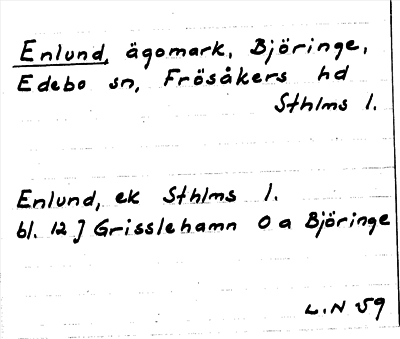 Enlund, ägomark, Björinge,
Edebo sn, Frösåkers hd
Sthlms l.
Enlund, ek Sthlms l.
bl. 12 J Grisslehamn O a Björinge
L.N 59